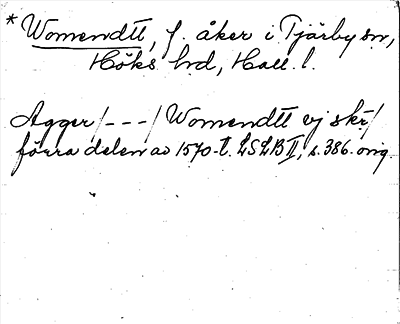 *Womendtt, f. åker i Tjärby sn,
Höks hd, Hall l.
Agger/---/Womendtt vj skr/
förra delen av 1570-t. LSLB II, s. 386. orig.